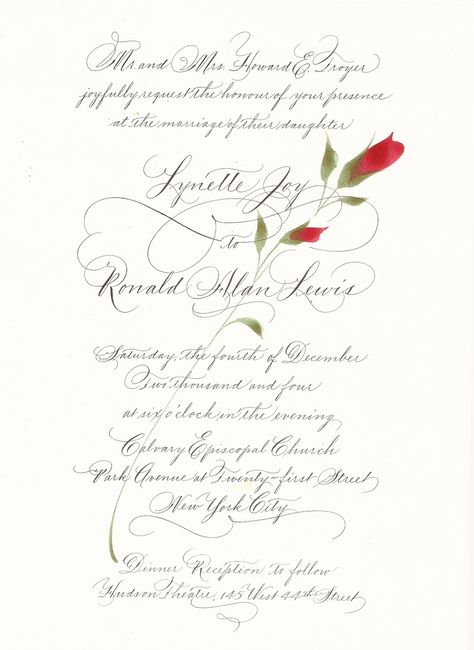 Mr. and Mrs. Howard E. Troyer
joyfully request the honour of your presence
at the marriage of their daughter
Lynette Joy
to
Ronald Alan Lewis
Saturday, the fourth of December
Two thousand and four
at six o'clock in the evening
Calvary Episcopal Church
Park Avenue at Twenty-first Street
New York City
Dinner Reception to follow
Hudson Theatre, 145 West 44th Street